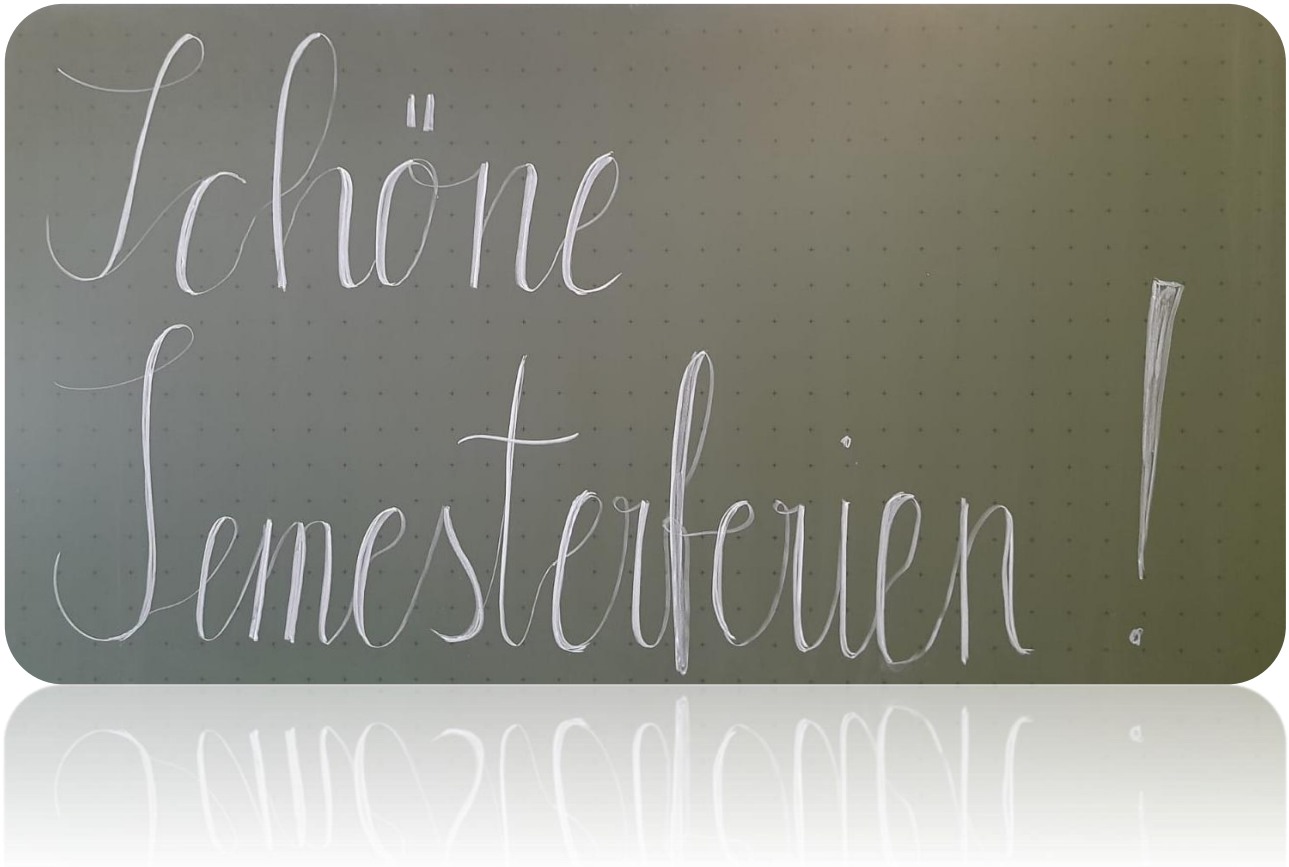 Schöne
Semesterferien!